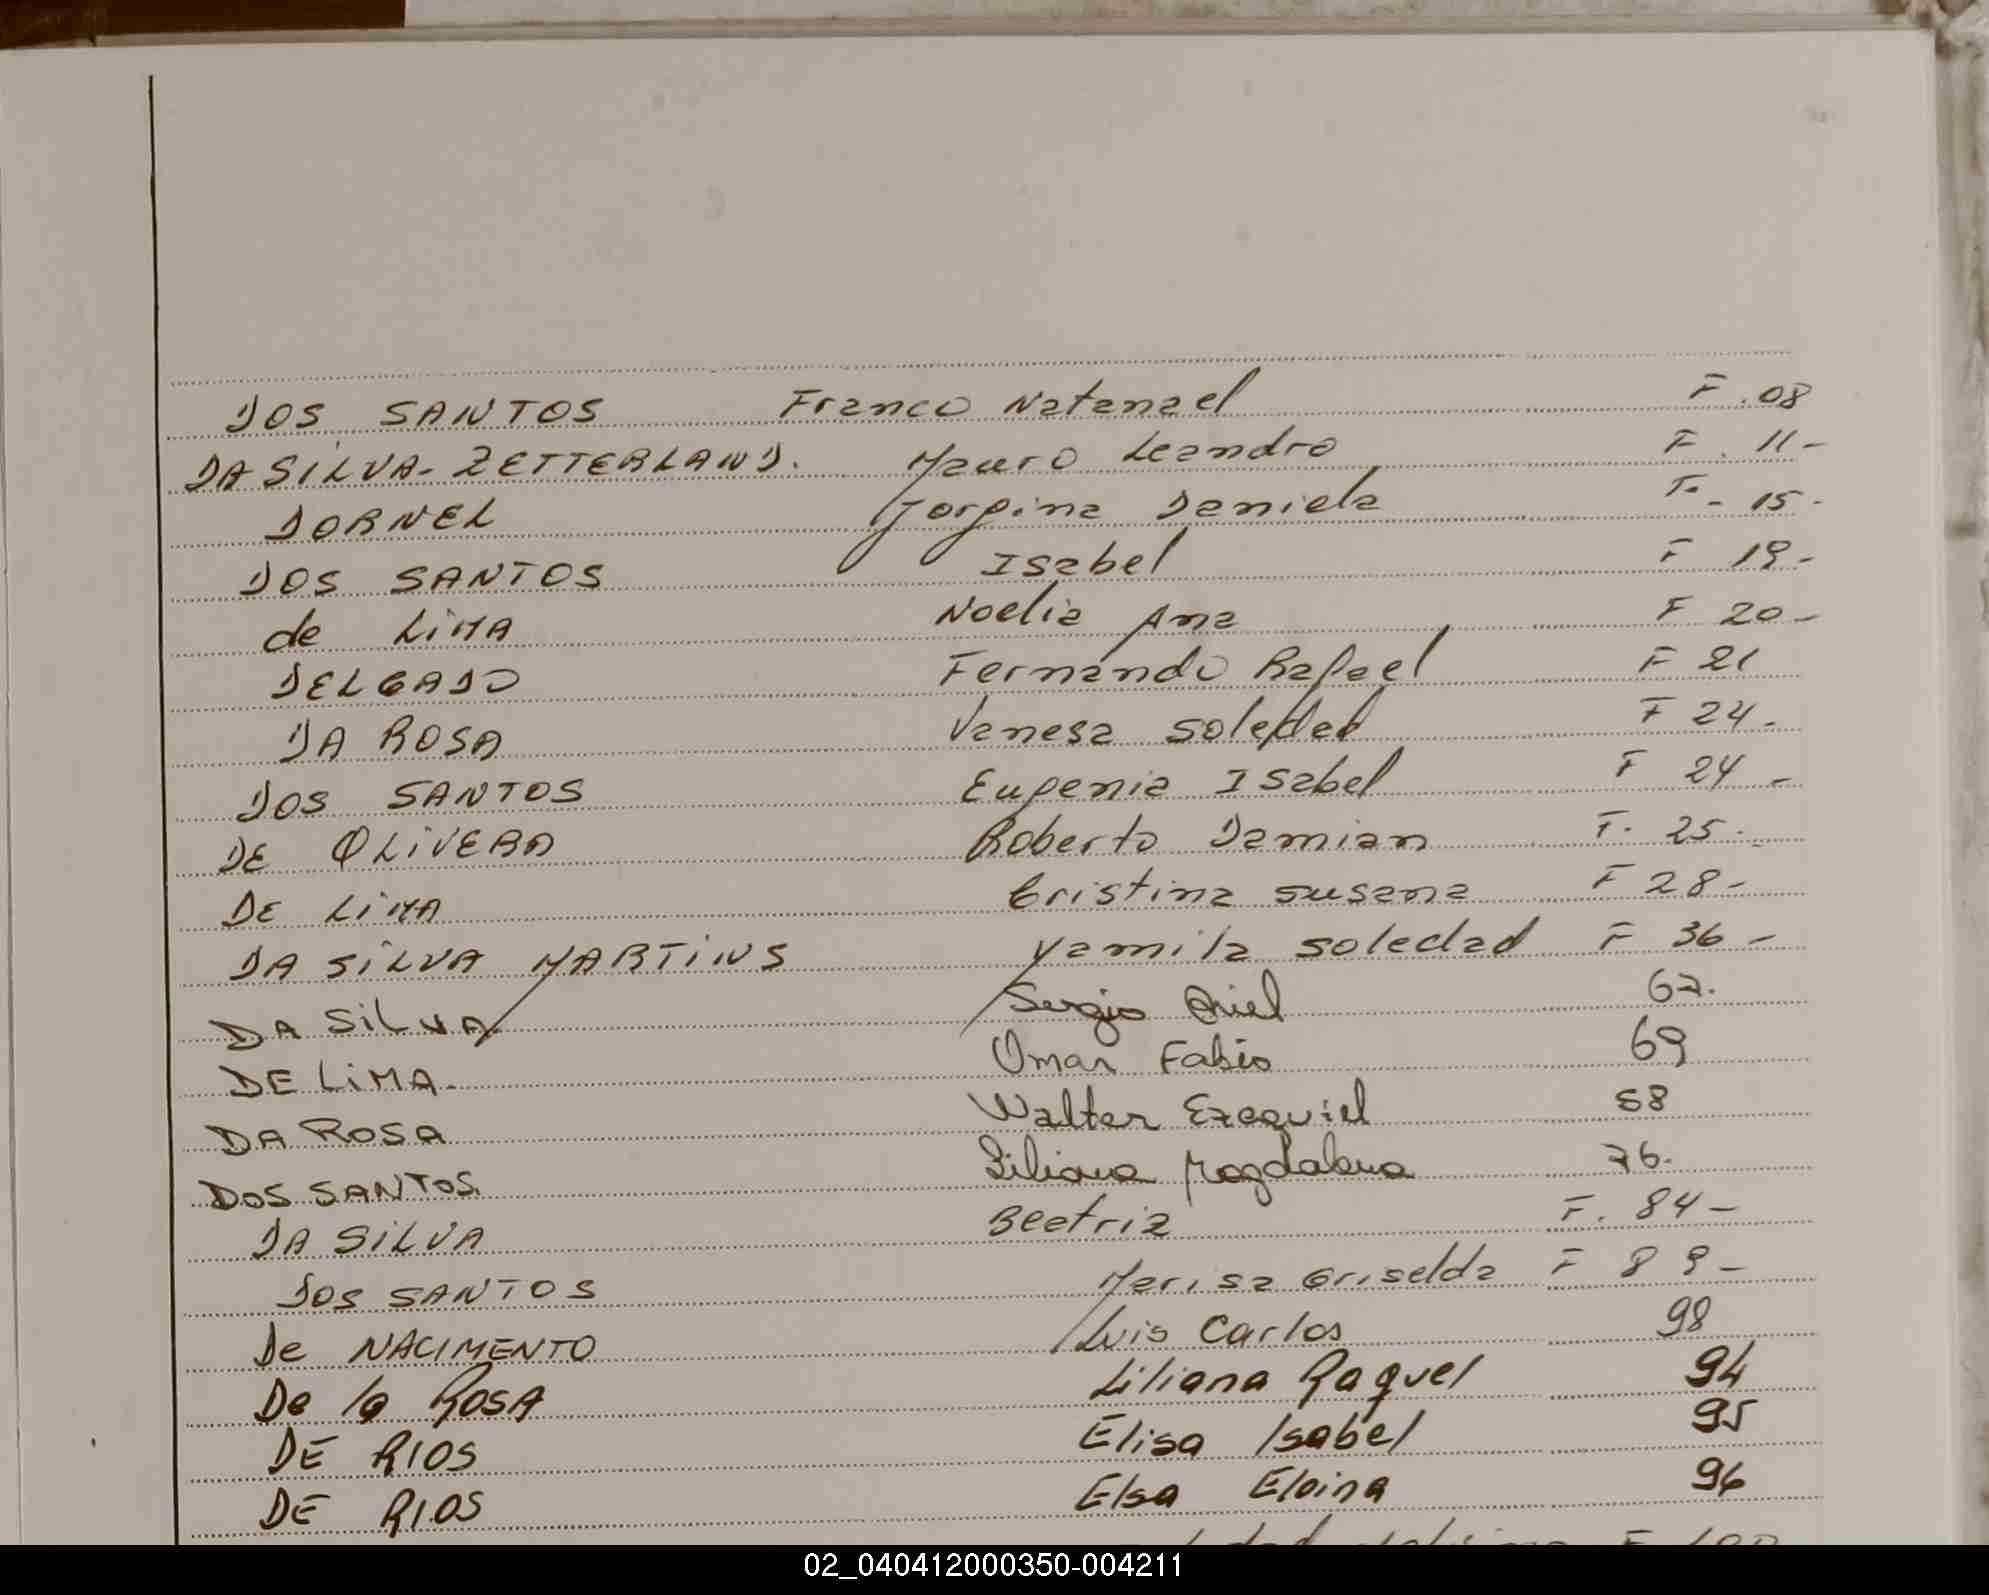 DOS SANTOS Franco Natanael F. 08
DA SILVA-ZETTERLAND. Mauro Leandro F. 11-
DORNEL Jorgina Daniela F. - 15-
DOS SANTOS Isabel F 19-
de LIMA Noelia Ana F 20-
DELGADO Fernando Rafael F 21
DA ROSA Vanesa Soledad F 24-
DOS SANTOS Eugenia Isabel F 24-
DE OLIVERA Roberto Damian F. 25-
DE LIMA Cristina Susana F 28-
DA SILVA MARTINS Yamila Soledad F 36-
DA SILVA. Sergio Ariel 67.
DE LIMA. Omar Fabio 69
DA ROSA Walter Ezequiel 58
DOS SANTOS. Liliana Magdalena 76.
DA SILVA Beatriz F. 84-
DOS SANTOS Marisa Griselda F 89-
De NACIMENTO Luis Carlos 98
De la ROSA Liliana Raquel 94
DE RIOS Elisa Isabel 95
DE RIOS Elsa Eloina 96
02_040412000350-004211